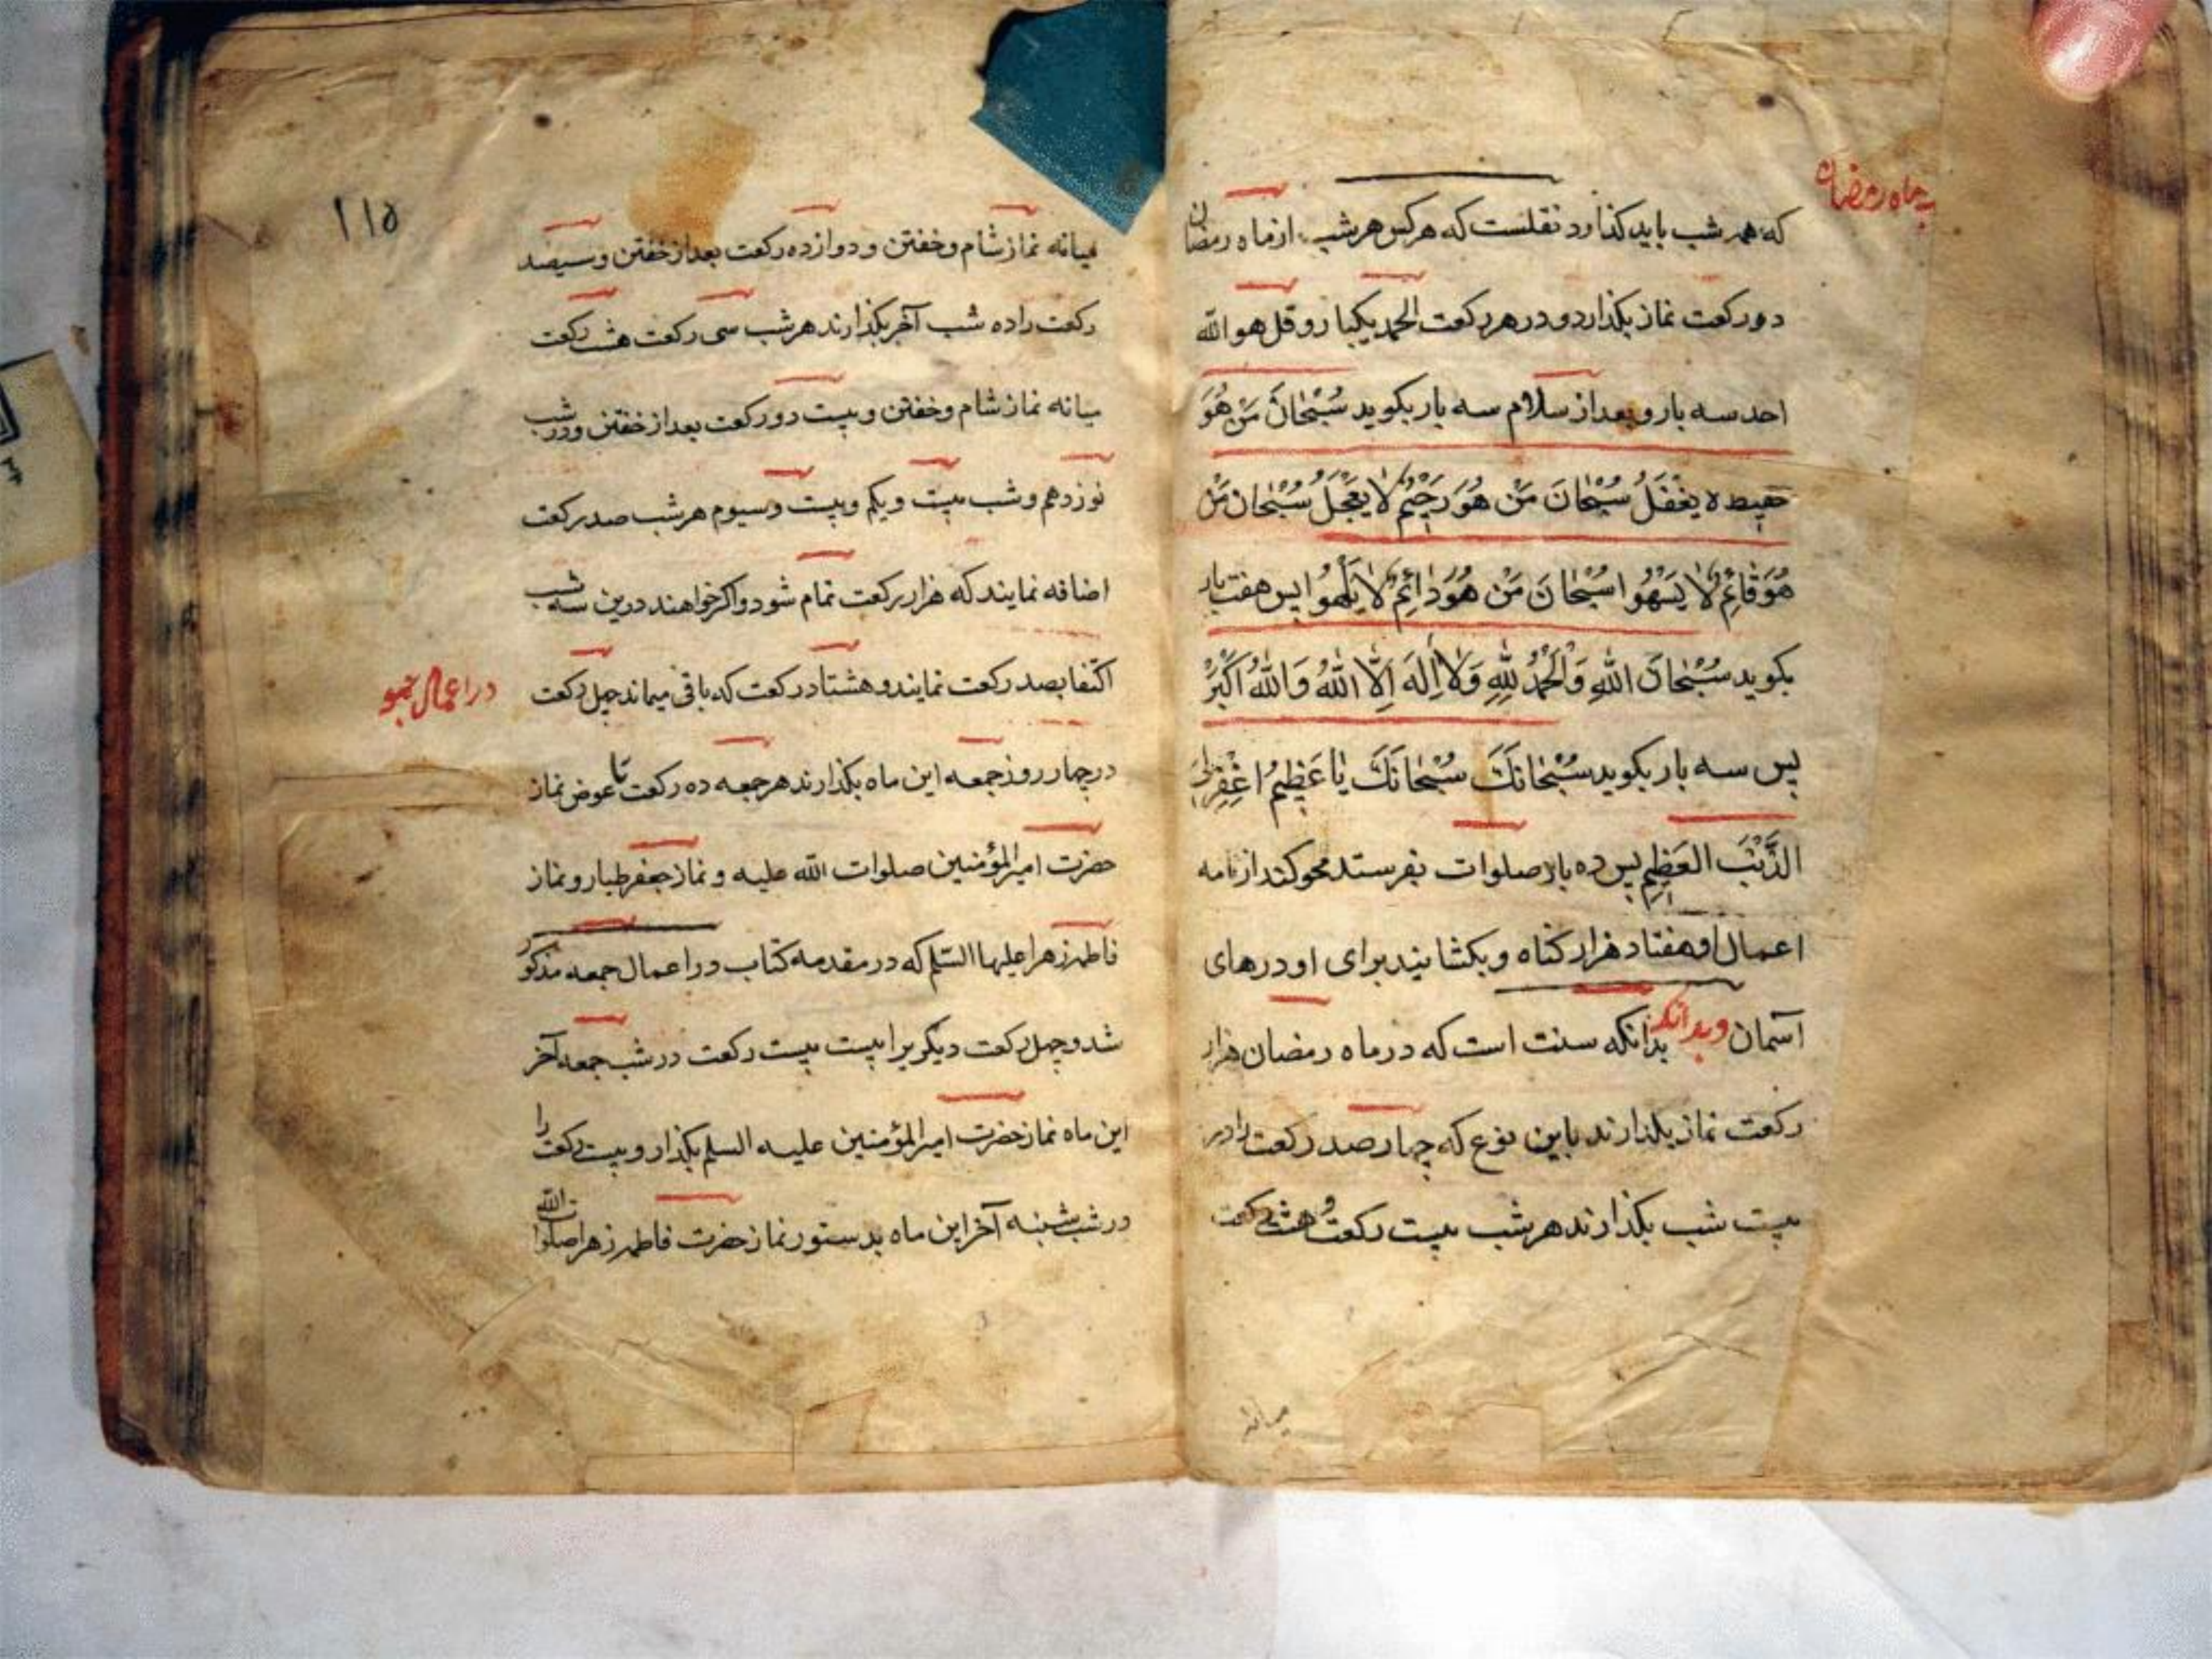 بماه رمضان
که همه شب باید گذارد نقلست که هر کس هر شب از ماه رمضان
دو رکعت نماز بگذارد و در هر رکعت الحمد یکبار و قل هو الله
احد سه بار و بعد از سلام سه بار بگوید سُبْحَانَ مَنْ هُوَ
حفیظ لا یَغْفَلُ سُبْحَانَ مَنْ هُوَ رَحِیْمٌ لَا یَعْجَلُ سُبْحَانَ مَنْ
هُوَ قَائِمٌ لَا یَسْهُوا سُبْحَانَ مَنْ هُوَ دَائِمٌ لَا یَلْهُوا پس هفت بار
بگوید سُبْحَانَ اللهِ وَالْحَمْدُ لِلّٰهِ وَلَا اِلٰهَ اِلَّا اللهُ وَاللهُ اَکْبَرُ
پس سه بار بگوید سُبْحَانَکَ سُبْحَانَکَ یَا عَظِیْمُ اغْفِرْ لِیَ
الذَّنْبَ العَظِیْمَ پس ده بار صلوات بفرستد محو کند از نامه
اعمال او هفتاد هزار گناه و بگشایند برای او درهای
آسمان وبدانکه بدانکه سنت است که در ماه رمضان هزار
رکعت نماز بگذارند باین نوع که چهار صد رکعت را در
بیست شب بگذارند هر شب بیست رکعت و هشت رکعت
میانه
۱۱۵
میانه نماز شام و خفتن و دوازده رکعت بعد از خفتن و سیصد
رکعت را ده شب آخر بگذارند هر شب سی رکعت هشت رکعت
میانه نماز شام و خفتن و بیست دو رکعت بعد از خفتن و در شب
نوزدهم و شب بیست و یکم و بیست و سیوم هر شب صد رکعت
اضافه نمایند که هزار رکعت تمام شود و اکر خواهند درین سه شب
اکتفا بصد رکعت نمایند و هشتاد رکعت که باقی میماند چهل رکعت
در اعمال جمعه
در چهار روز جمعه این ماه بگذارند هر جمعه ده رکعت تا عوض نماز
حضرت امیرالمؤمنین صلوات الله علیه و نماز جعفر طیار و نماز
فاطمه زهرا علیها السّلم که در مقدمه کتاب در اعمال جمعه مذکور
شد و چهل رکعت دیگر برا بیست بیست رکعت در شب جمعه آخر
این ماه نماز حضرت امیرالمؤمنین علیه السلم بگذارد و بیست رکعت را
در شب شنبه آخر این ماه بدستور نماز حضرت فاطمه زهرا صلوات الله